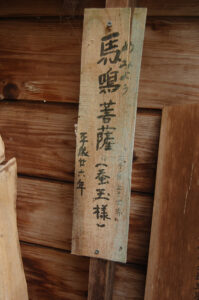 馬鳴菩薩(蚕玉様)
めみょう
平成廿六年